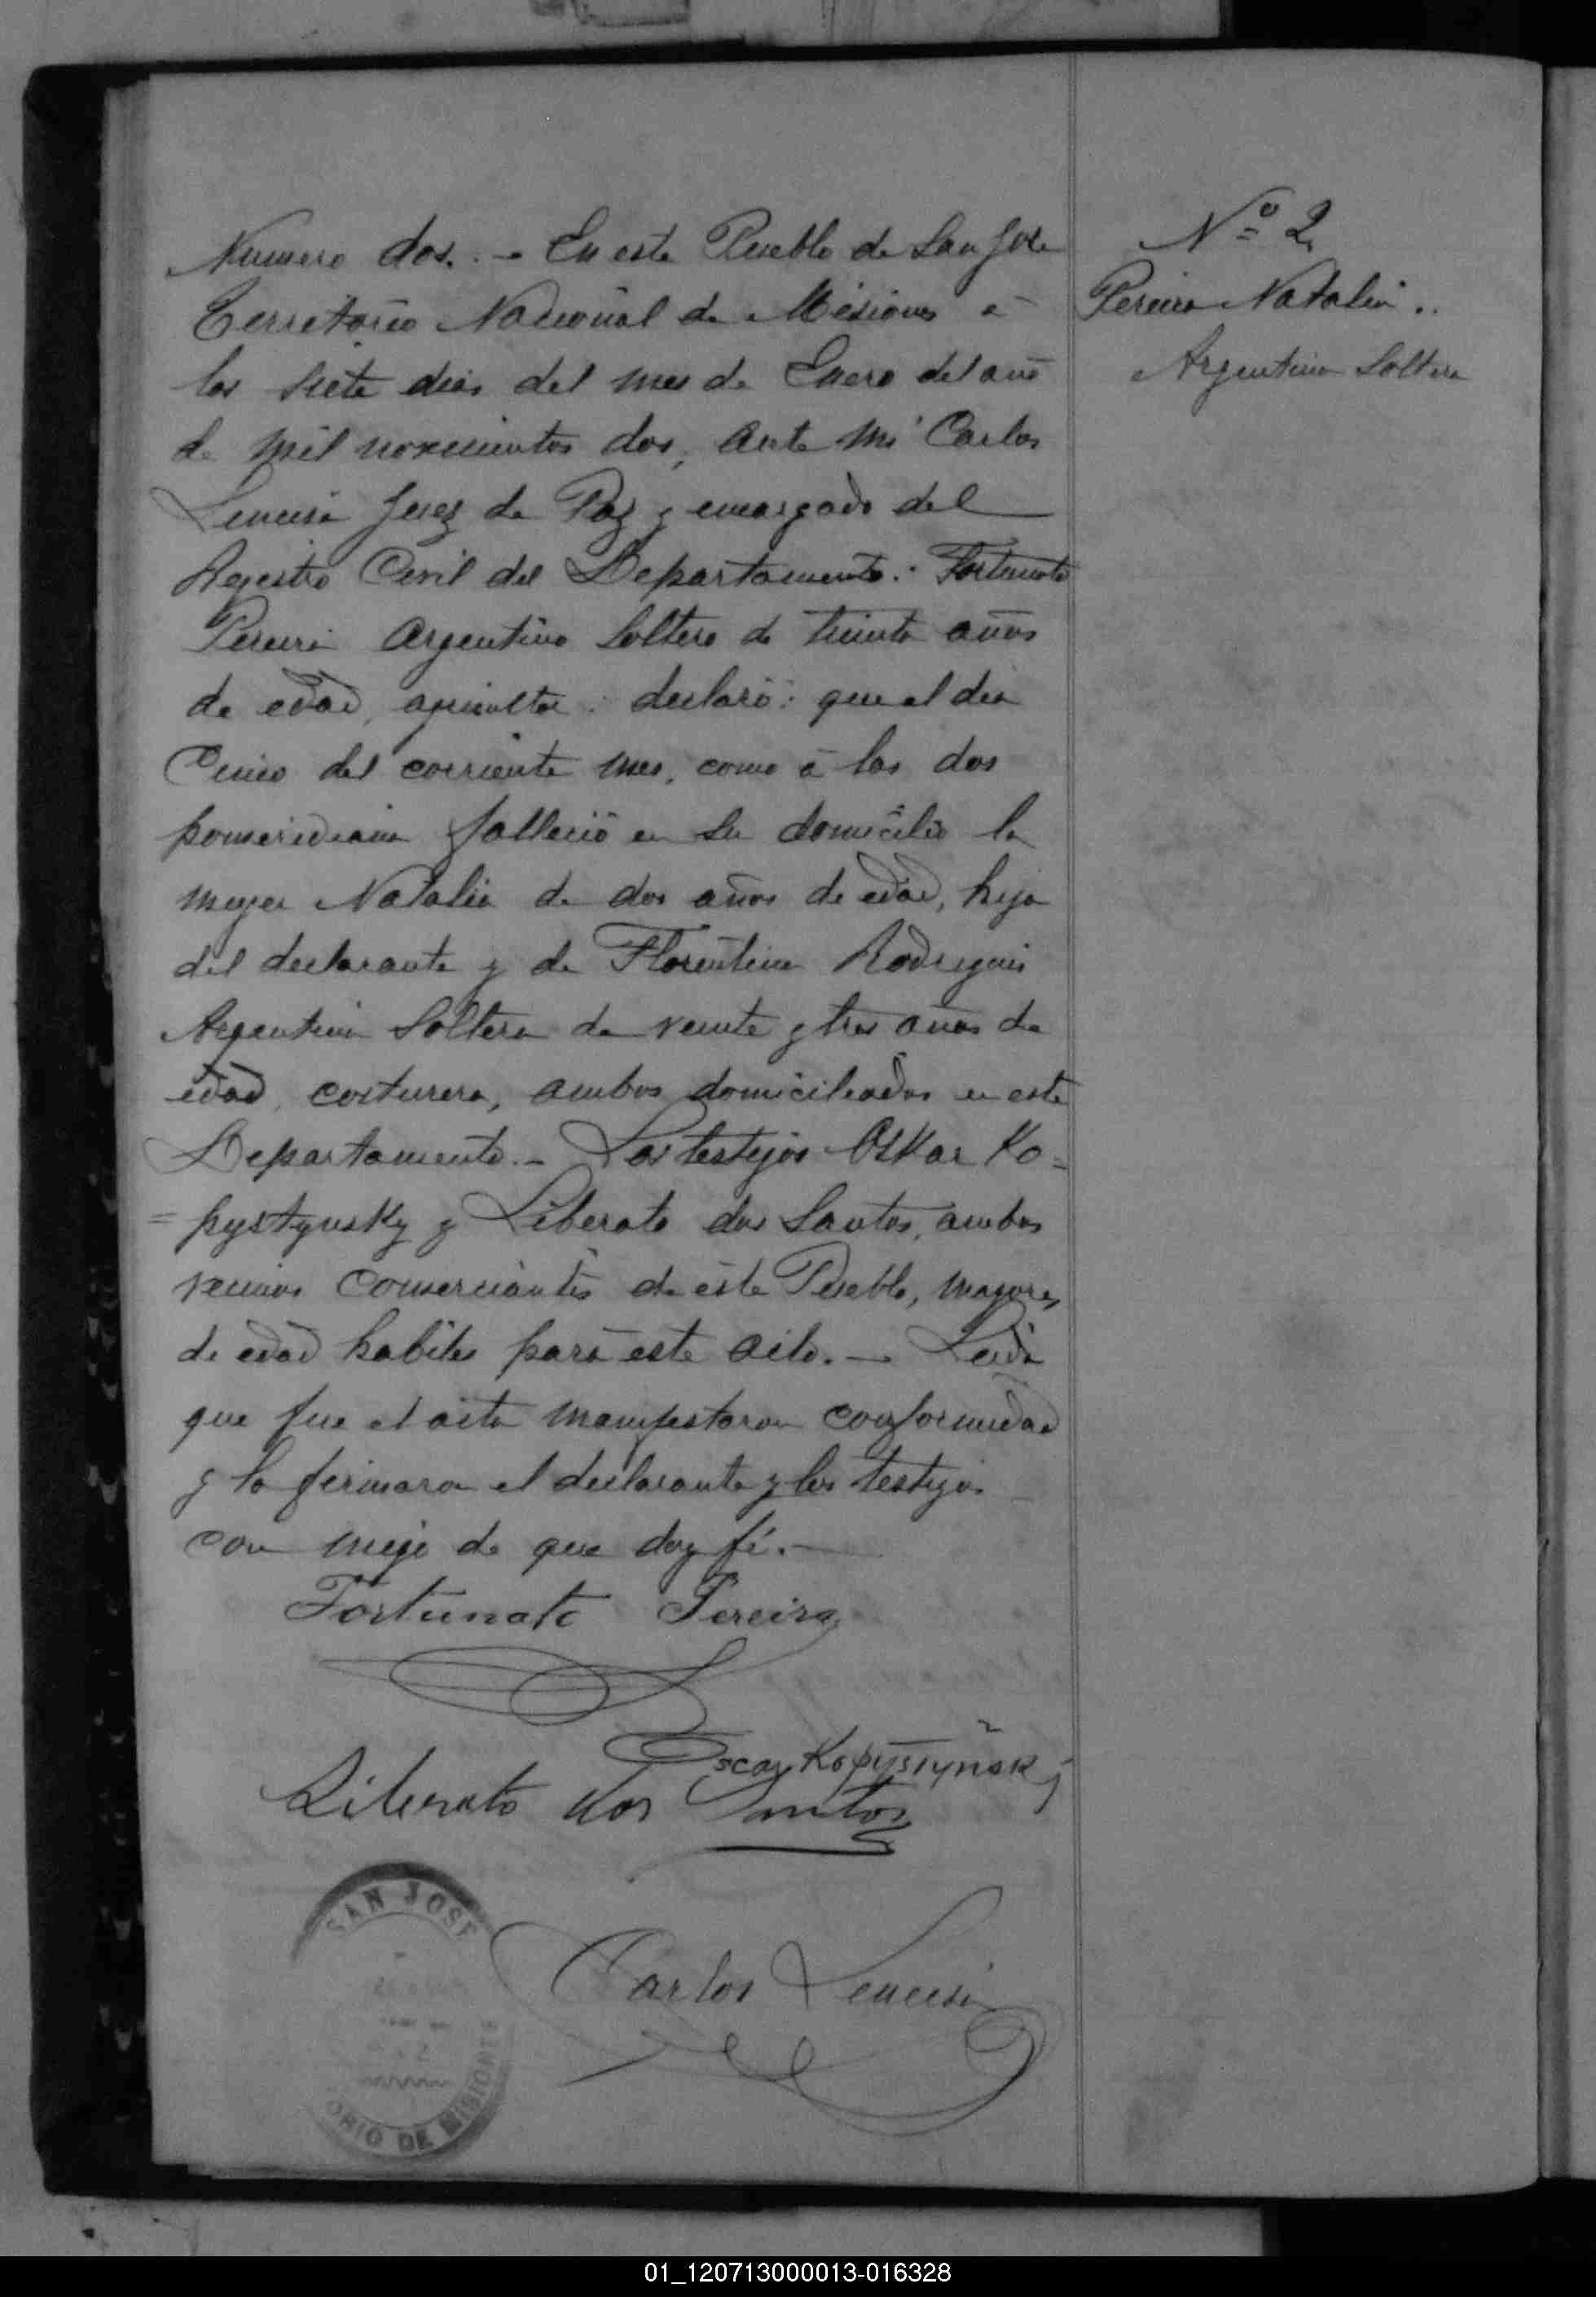 Numero dos. - En este Pueblo de San José
Territorio Nacional de Misiones à
los siete dias del mes de Enero del año
de mil novecientos dos, ante mi Carlos
Juez de Paz y encargado del
Registro Civil del Departamento: Fortunato
Pereira Argentino Soltero de treinta años
de edad, agricultor declaró: que el dia
Cinco del corriente mes, como à las dos
pomeridiana falleció en su domicilio la
mujer Natalia de dos años de edad, hija
del declarante y de Florentina Rodrigues
Argentina Soltera de veinte y tres años de
edad, costurera, ambos domiciliados en este
Departamento. - Los testigos Oskar Ko=
=pystynsky y Liberato dos Santos, ambos
vecinos Comerciantes de este Pueblo, mayores
de edad habiles para este acto. - Leida
que fue el acta manifestaron conformidad
y la firmaron el declarante y los testigos
con migo de que doy fé. -
Fortunato Pereira
Oscar Kopystyński
Liberato dos Santos
Carlos
SAN JOSE
ORIO DE MISIONES
Nº 2
Pereira Natalia..
Argentina Soltera
01_120713000013-016328